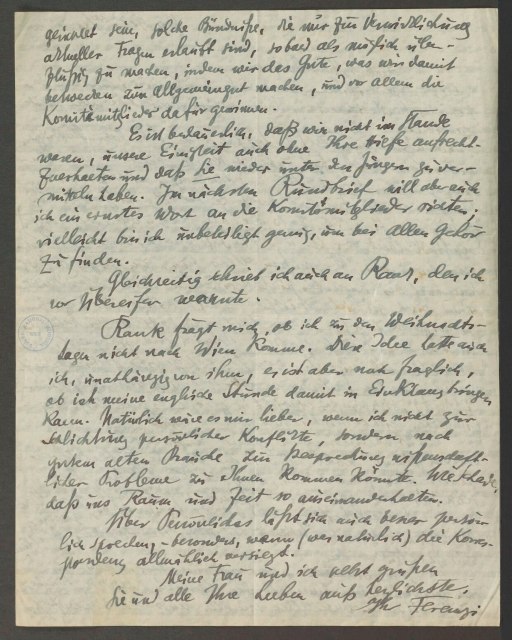 gerichtet sein, solche Bündnisse, die nur zur Verwirklichung
aktueller Fragen erlaubt sind, sobald als möglich über-
flüssig zu machen, indem wir das Gute, was wir damit
bezwecken zum Allgemeingut machen, und vor allem die
Komitémitglieder dafür gewinnen.
Es ist bedauerlich, daß wir nicht im Stande
waren, unsere Einigkeit auch ohne Ihre Hilfe aufrecht-
zuerhalten und daß Sie wieder unter den Jüngern zu ver-
mitteln haben. Im nächsten Rundbrief will aber auch
ich ein ernstes Wort an die Komitémitglieder richten;
vielleicht bin ich unbeteiligt genug, um bei allen Gehör
zu finden.
Gleichzeitig schrieb ich auch an Rank, den ich
vor Übereifer warnte.
Rank frägt mich, ob ich zu den Weihnachts-
tagen nicht nach Wien komme. Diese Idee hatte auch
ich, unabhängig von ihm, es ist aber noch fraglich,
ob ich meine englische Stunde damit in Einklang bringen
kann. Natürlich wäre es mir lieber, wenn ich nicht zur
Schlichtung persönlicher Konflikte, sondern nach
gutem alten Brauche zur Besprechung wissenschaft-
licher Probleme zu Ihnen kommen könnte. Wie schade,
daß uns Raum und Zeit so auseinanderhalten.
Über Persönliches läßt sich auch besser persön-
lich sprechen, – besonders, wenn (wie natürlich) die Korres-
pondenz allmählich versiegt.
Meine Frau und ich selbst grüßen
Sie und alle Ihre Lieben aufs herzlichste.
Ihr Ferenczi